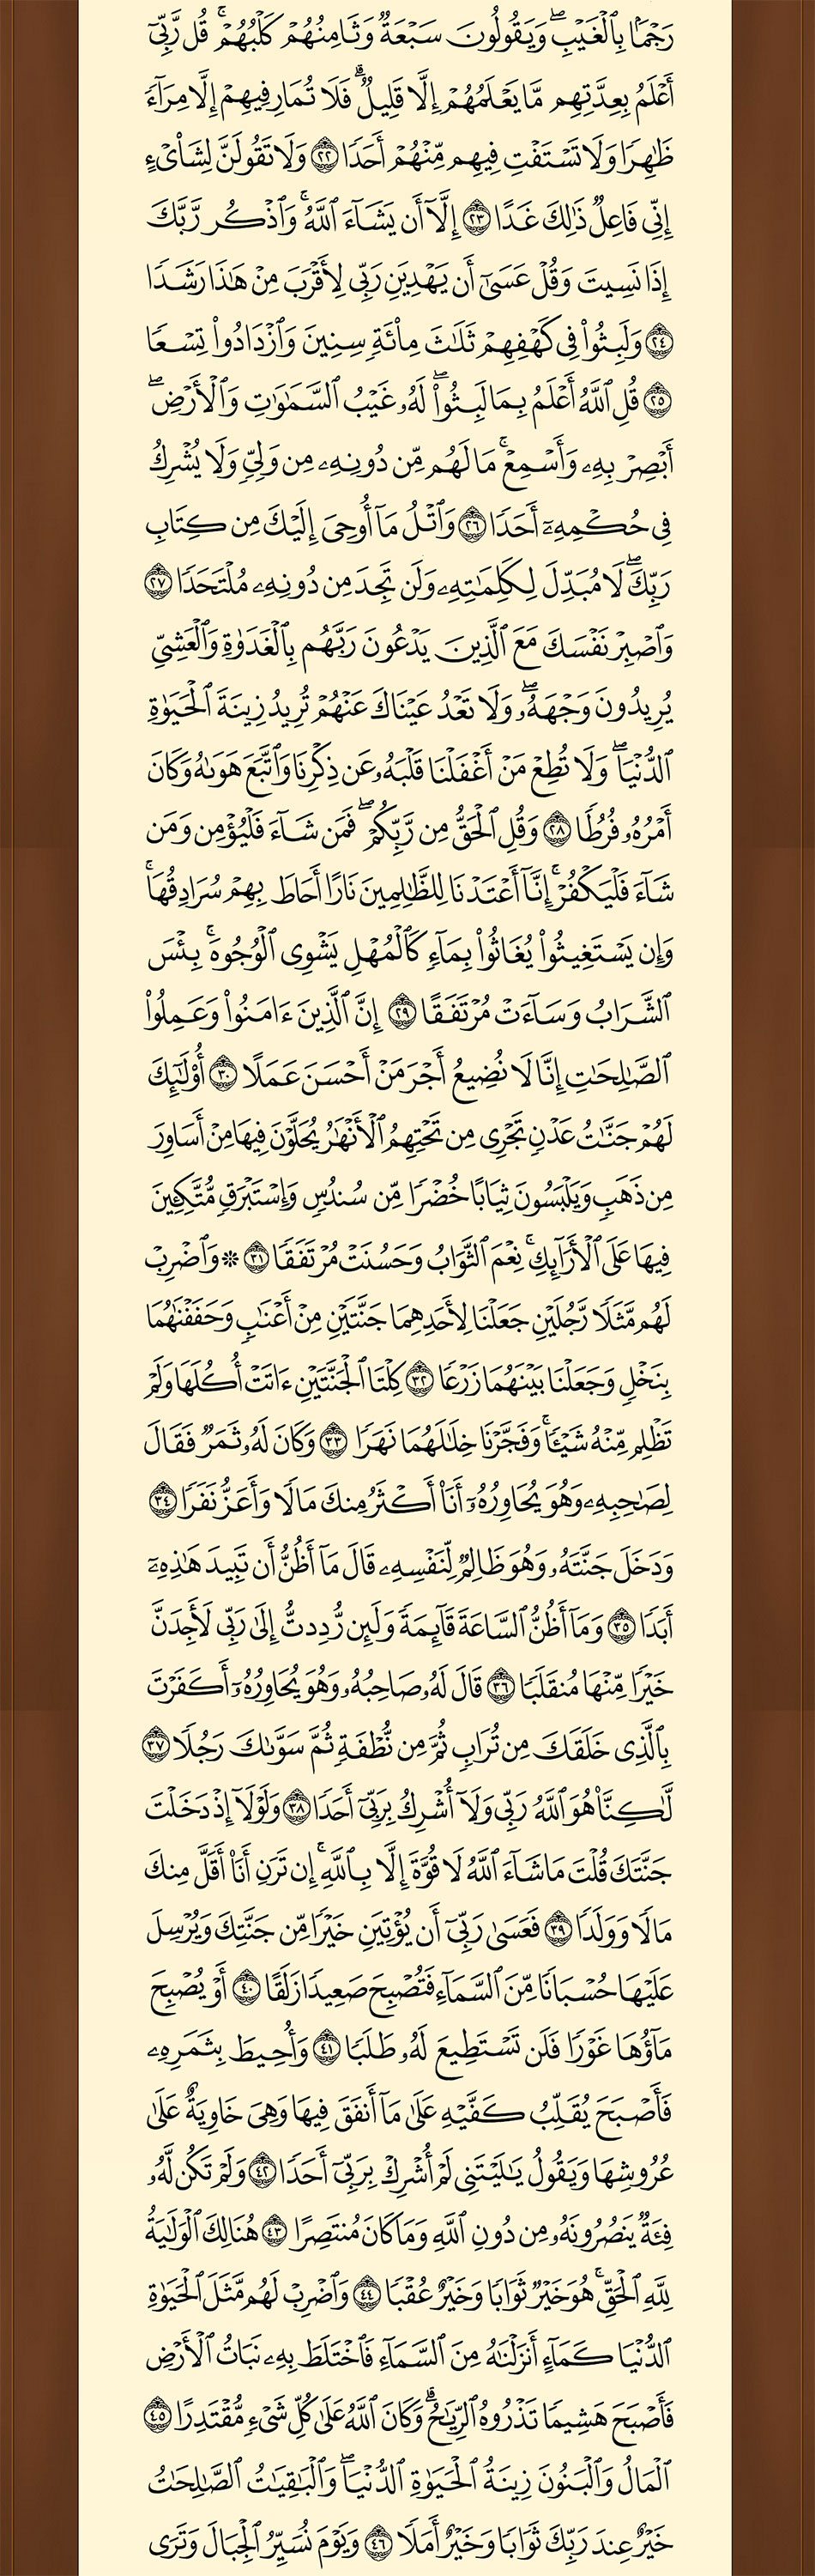 رَجْمَۢا بِٱلْغَيْبِۖ وَيَقُولُونَ سَبْعَةٞ وَثَامِنُهُمْ كَلْبُهُمْۚ قُل رَّبِّيٓ
أَعْلَمُ بِعِدَّتِهِم مَّا يَعْلَمُهُمْ إِلَّا قَلِيلٞۗ فَلَا تُمَارِ فِيهِمْ إِلَّا مِرَآءٗ
ظَٰهِرٗا وَلَا تَسْتَفْتِ فِيهِم مِّنْهُمْ أَحَدٗا ٢٢ وَلَا تَقُولَنَّ لِشَاْيْءٍ
إِنِّي فَاعِلٞ ذَٰلِكَ غَدًا ٢٣ إِلَّآ أَن يَشَآءَ ٱللَّهُۚ وَٱذْكُر رَّبَّكَ
إِذَا نَسِيتَ وَقُلْ عَسَىٰٓ أَن يَهْدِيَنِ رَبِّي لِأَقْرَبَ مِنْ هَٰذَا رَشَدٗا
٢٤ وَلَبِثُوا۟ فِي كَهْفِهِمْ ثَلَٰثَ مِا۟ئَةٖ سِنِينَ وَٱزْدَادُوا۟ تِسْعٗا
٢٥ قُلِ ٱللَّهُ أَعْلَمُ بِمَا لَبِثُوا۟ۖ لَهُۥ غَيْبُ ٱلسَّمَٰوَٰتِ وَٱلْأَرْضِۖ
أَبْصِرْ بِهِۦ وَأَسْمِعْۚ مَا لَهُم مِّن دُونِهِۦ مِن وَلِيّٖ وَلَا يُشْرِكُ
فِي حُكْمِهِۦٓ أَحَدٗا ٢٦ وَٱتْلُ مَآ أُوحِيَ إِلَيْكَ مِن كِتَابِ
رَبِّكَۖ لَا مُبَدِّلَ لِكَلِمَٰتِهِۦ وَلَن تَجِدَ مِن دُونِهِۦ مُلْتَحَدٗا ٢٧
وَٱصْبِرْ نَفْسَكَ مَعَ ٱلَّذِينَ يَدْعُونَ رَبَّهُم بِٱلْغَدَوٰةِ وَٱلْعَشِيِّ
يُرِيدُونَ وَجْهَهُۥۖ وَلَا تَعْدُ عَيْنَاكَ عَنْهُمْ تُرِيدُ زِينَةَ ٱلْحَيَوٰةِ
ٱلدُّنْيَاۖ وَلَا تُطِعْ مَنْ أَغْفَلْنَا قَلْبَهُۥ عَن ذِكْرِنَا وَٱتَّبَعَ هَوَىٰهُ وَكَانَ
أَمْرُهُۥ فُرُطٗا ٢٨ وَقُلِ ٱلْحَقُّ مِن رَّبِّكُمْۖ فَمَن شَآءَ فَلْيُؤْمِن وَمَن
شَآءَ فَلْيَكْفُرْۚ إِنَّآ أَعْتَدْنَا لِلظَّٰلِمِينَ نَارًا أَحَاطَ بِهِمْ سُرَادِقُهَاۚ
وَإِن يَسْتَغِيثُوا۟ يُغَاثُوا۟ بِمَآءٖ كَٱلْمُهْلِ يَشْوِي ٱلْوُجُوهَۚ بِئْسَ
ٱلشَّرَابُ وَسَآءَتْ مُرْتَفَقًا ٢٩ إِنَّ ٱلَّذِينَ ءَامَنُوا۟ وَعَمِلُوا۟
ٱلصَّٰلِحَٰتِ إِنَّا لَا نُضِيعُ أَجْرَ مَنْ أَحْسَنَ عَمَلًا ٣٠ أُو۟لَٰٓئِكَ
لَهُمْ جَنَّٰتُ عَدْنٖ تَجْرِي مِن تَحْتِهِمُ ٱلْأَنْهَٰرُ يُحَلَّوْنَ فِيهَا مِنْ أَسَاوِرَ
مِن ذَهَبٖ وَيَلْبَسُونَ ثِيَابًا خُضْرٗا مِّن سُندُسٖ وَإِسْتَبْرَقٖ مُّتَّكِـِٔينَ
فِيهَا عَلَى ٱلْأَرَآئِكِۚ نِعْمَ ٱلثَّوَابُ وَحَسُنَتْ مُرْتَفَقٗا ٣١ ۞ وَٱضْرِبْ
لَهُم مَّثَلٗا رَّجُلَيْنِ جَعَلْنَا لِأَحَدِهِمَا جَنَّتَيْنِ مِنْ أَعْنَٰبٖ وَحَفَفْنَٰهُمَا
بِنَخْلٖ وَجَعَلْنَا بَيْنَهُمَا زَرْعٗا ٣٢ كِلْتَا ٱلْجَنَّتَيْنِ ءَاتَتْ أُكُلَهَا وَلَمْ
تَظْلِم مِّنْهُ شَيْـٔٗاۚ وَفَجَّرْنَا خِلَٰلَهُمَا نَهَرٗا ٣٣ وَكَانَ لَهُۥ ثَمَرٞ فَقَالَ
لِصَٰحِبِهِۦ وَهُوَ يُحَاوِرُهُۥٓ أَنَا۠ أَكْثَرُ مِنكَ مَالٗا وَأَعَزُّ نَفَرٗا ٣٤
وَدَخَلَ جَنَّتَهُۥ وَهُوَ ظَالِمٞ لِّنَفْسِهِۦ قَالَ مَآ أَظُنُّ أَن تَبِيدَ هَٰذِهِۦٓ
أَبَدٗا ٣٥ وَمَآ أَظُنُّ ٱلسَّاعَةَ قَآئِمَةٗ وَلَئِن رُّدِدتُّ إِلَىٰ رَبِّي لَأَجِدَنَّ
خَيْرٗا مِّنْهَا مُنقَلَبٗا ٣٦ قَالَ لَهُۥ صَاحِبُهُۥ وَهُوَ يُحَاوِرُهُۥٓ أَكَفَرْتَ
بِٱلَّذِي خَلَقَكَ مِن تُرَابٖ ثُمَّ مِن نُّطْفَةٖ ثُمَّ سَوَّىٰكَ رَجُلٗا ٣٧
لَّٰكِنَّا۠ هُوَ ٱللَّهُ رَبِّي وَلَآ أُشْرِكُ بِرَبِّيٓ أَحَدٗا ٣٨ وَلَوْلَآ إِذْ دَخَلْتَ
جَنَّتَكَ قُلْتَ مَا شَآءَ ٱللَّهُ لَا قُوَّةَ إِلَّا بِٱللَّهِۚ إِن تَرَنِ أَنَا۠ أَقَلَّ مِنكَ
مَالٗا وَوَلَدٗا ٣٩ فَعَسَىٰ رَبِّيٓ أَن يُؤْتِيَنِ خَيْرٗا مِّن جَنَّتِكَ وَيُرْسِلَ
عَلَيْهَا حُسْبَانٗا مِّنَ ٱلسَّمَآءِ فَتُصْبِحَ صَعِيدٗا زَلَقًا ٤٠ أَوْ يُصْبِحَ
مَآؤُهَا غَوْرٗا فَلَن تَسْتَطِيعَ لَهُۥ طَلَبٗا ٤١ وَأُحِيطَ بِثَمَرِهِۦ
فَأَصْبَحَ يُقَلِّبُ كَفَّيْهِ عَلَىٰ مَآ أَنفَقَ فِيهَا وَهِيَ خَاوِيَةٌ عَلَىٰ
عُرُوشِهَا وَيَقُولُ يَٰلَيْتَنِي لَمْ أُشْرِكْ بِرَبِّيٓ أَحَدٗا ٤٢ وَلَمْ تَكُن لَّهُۥ
فِئَةٞ يَنصُرُونَهُۥ مِن دُونِ ٱللَّهِ وَمَا كَانَ مُنتَصِرًا ٤٣ هُنَالِكَ ٱلْوَلَٰيَةُ
لِلَّهِ ٱلْحَقِّۚ هُوَ خَيْرٞ ثَوَابٗا وَخَيْرٌ عُقْبٗا ٤٤ وَٱضْرِبْ لَهُم مَّثَلَ ٱلْحَيَوٰةِ
ٱلدُّنْيَا كَمَآءٍ أَنزَلْنَٰهُ مِنَ ٱلسَّمَآءِ فَٱخْتَلَطَ بِهِۦ نَبَاتُ ٱلْأَرْضِ
فَأَصْبَحَ هَشِيمٗا تَذْرُوهُ ٱلرِّيَٰحُۗ وَكَانَ ٱللَّهُ عَلَىٰ كُلِّ شَيْءٖ مُّقْتَدِرًا ٤٥
ٱلْمَالُ وَٱلْبَنُونَ زِينَةُ ٱلْحَيَوٰةِ ٱلدُّنْيَاۖ وَٱلْبَٰقِيَٰتُ ٱلصَّٰلِحَٰتُ
خَيْرٌ عِندَ رَبِّكَ ثَوَابٗا وَخَيْرٌ أَمَلٗا ٤٦ وَيَوْمَ نُسَيِّرُ ٱلْجِبَالَ وَتَرَى